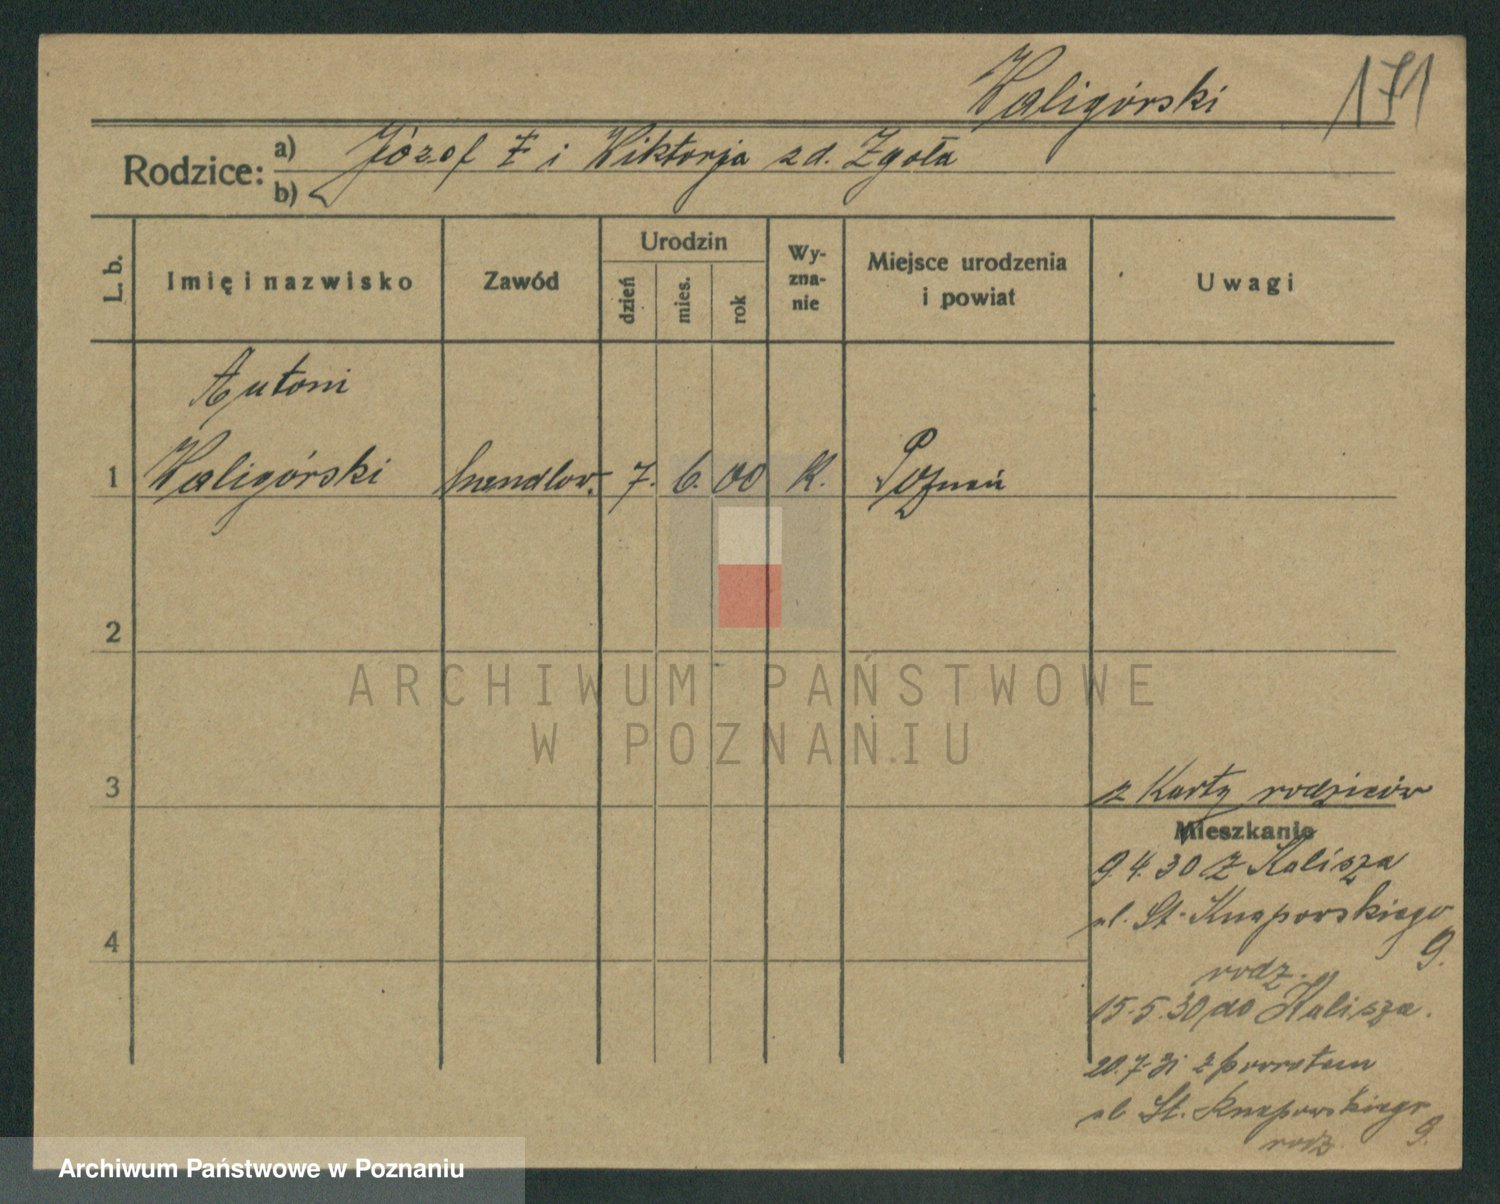 Waligórski 171
Rodzice: a) Józef Ł i Wiktorja zd. Zgoła
b)
L. b. Imię i nazwisko Zawód Urodzin dzień mies. rok Wyznanie Miejsce urodzenia i powiat Uwagi
Antoni
1 Waligórski handlow. 7. 6. 00 K. Poznań
2
ARCHIWUM PAŃSTWOWE
W POZNANIU
z Karty rodziców
3
Mieszkanie
9.4.30 z Kalisza
ul. St. Knapowskiego
4 9.
rodz.
15.5.30 do Kalisza.
20.7.31 z powrotem
ul St. Knapowskiego
9.
rodz
Archiwum Państwowe w Poznaniu